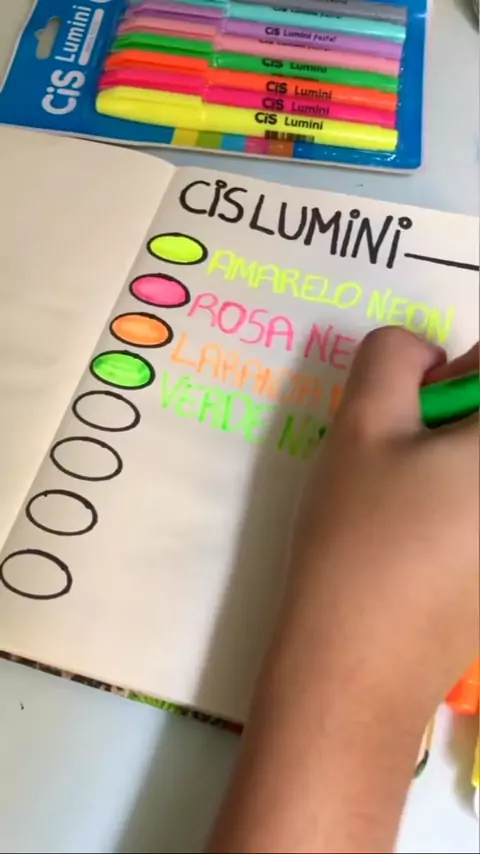 CiS Lumini
Lumini Pastel
CiS Lumini
CiS Lumini
CiS Lumini
CiS Lumini
CISLUMINI
AMARELO NEON
ROSA NE
LARANJA
VERDE N